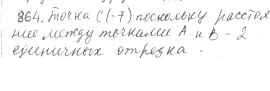 864. Точка C(-7) поскольку расстоя
ние между точками A и B - 2
единичных отрезка.